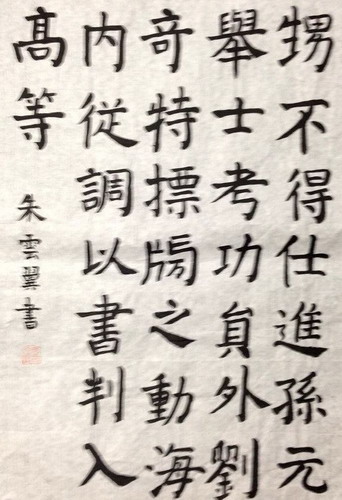 甥不得仕進孫元
舉士考功員外劉
奇特摽牓之動海
内從調以書判入
髙等
朱雲翼書